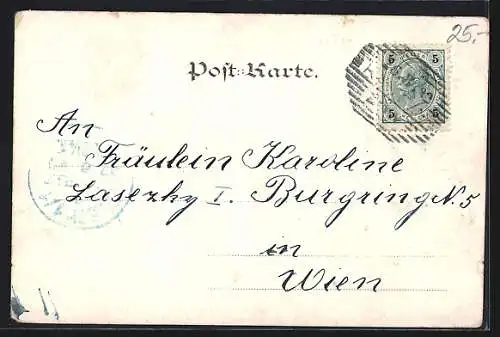 25.-
Post-Karte.
5 5
5 5
An
Fräulein Karoline
Lasezky I. Burgring N. 5
in
Wien